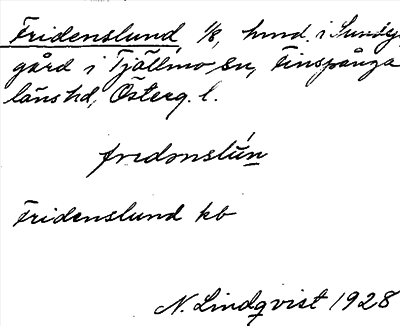 Fridenslund 1/8, hmd. i Sundsj
gård i Tjällmo sn, Finspånga
läns hd, Österg. l.
fridənslún
Fridenslund kb
N. Lindqvist 1928